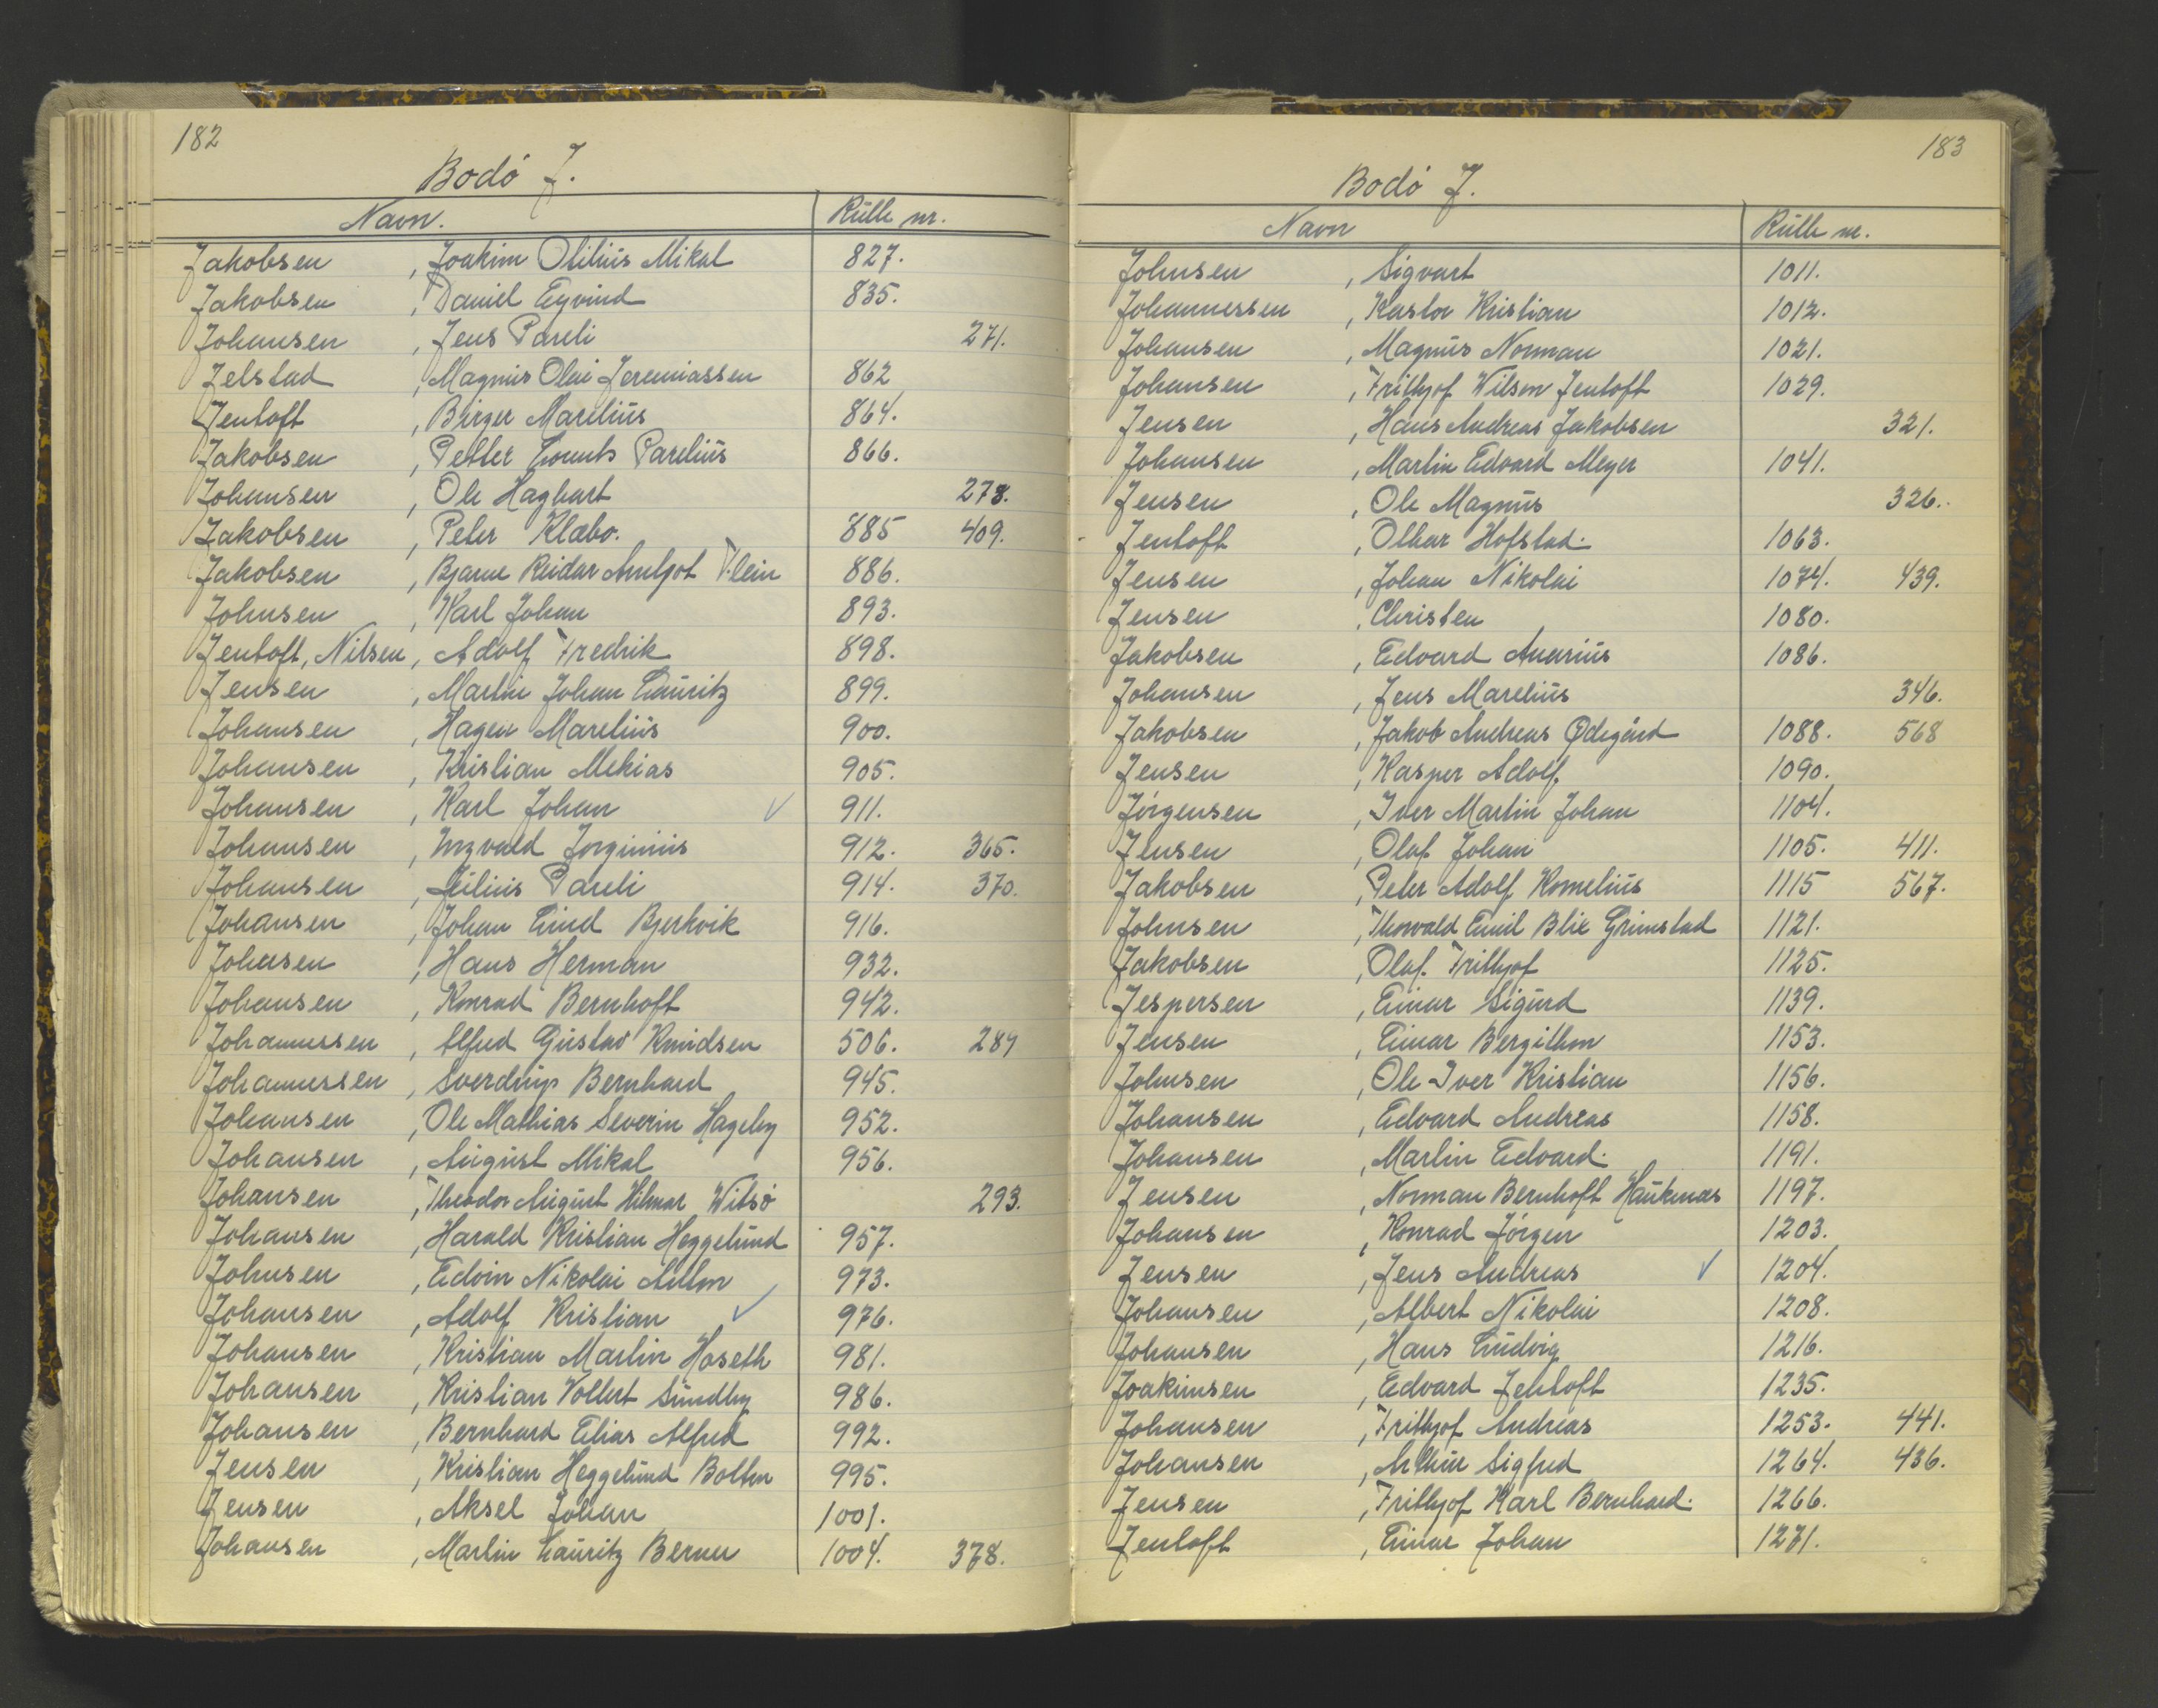 182
Bodö J.
Navn. Rulle nr.
Jakobsen , Joakim Otilius Mikal 827.
Jakobsen , Daniel Eyvind 835.
Johansen , Jens Pareli 271.
Jelstad , Magnus Olai Jeremiassen 862
Jentoft , Birger Marelius 864.
Jakobsen , Petter Lorents Parelius 866.
Johansen , Ole Hagbart 278.
Jakobsen , Peter Klæbo. 885 409.
Jakobsen , Bjarne Reidar Arnljot 886.
Johnsen , Karl Johan 893.
Jentoft, Nilsen , Adolf Fredrik 898.
Jensen , Martin Johan Lauritz 899.
Johansen , Hagen Marelius 900.
Johansen , Kristian Mekias 905.
Johansen , Karl Johan ✓ 911.
Johansen , Ingvald Jorginius 912. 365.
Johansen , Julius Pareli 914. 370.
Johansen , Johan Emil Bjerkvik 916.
Johnsen , Hans Herman 932.
Johansen , Konrad Bernhoft 942.
Johannessen , Alfred Gustav Knudsen 506. 289
Johannessen , Sverdrup Bernhard 945.
Johansen , Ole Mathias Severin Hageby 952.
Johansen , August Mikal 956.
Johansen , Theodor August Hilmar Witsö 293.
Johansen , Harald Kristian Heggelund 957.
Johnsen , Edvin Nikolai Anton 973.
Johansen , Adolf Kristian ✓ 976.
Johansen , Kristian Martin Haseth 981.
Johansen , Kristian Vollert Sundby 986.
Johansen , Bernhard Elias Alfred 992.
Jensen , Kristian Heggelund Bolton 995.
Jensen , Aksel Johan 1001.
Johansen , Martin Lauritz Berner 1004. 378.
183
Bodö J.
Navn Rulle nr.
Johnsen , Sigvart 1011.
Johannessen , Kastor Kristian 1012.
Johansen , Magnus Norman 1021.
Johansen , Frithjof Wilson Jentoft 1029.
Jensen , Hans Andreas Jakobsen 321.
Johansen , Martin Edvard Meyer 1041.
Jensen , Ole Magnus 326.
Jentoft , Othar Hofstad. 1063.
Jensen , Johan Nikolai 1074. 439.
Jensen , Christen 1080.
Jakobsen , Edvard Anarius 1086.
Johansen , Jens Marelius 346.
Jakobsen , Jakob Andreas Ødegård 1088. 568
Jensen , Kasper Adolf 1090.
Jörgensen , Iver Martin Johan 1104.
Jensen , Olaf Johan 1105. 411.
Jakobsen , Peter Adolf Kornelius 1115 567.
Johnsen , Thorvald Emil Blix Grimstad 1121.
Jakobsen , Olaf Frithjof 1125.
Jespersen , Einar Sigurd 1139.
Jensen , Einar Bergithon 1153.
Johnsen , Ole Iver Kristian 1156.
Johansen , Edvard Andreas 1158.
Johansen , Martin Edvard. 1191.
Jensen , Norman Bernhoft Haukenæs 1197.
Johansen , Konrad Jörgen 1203.
Jensen , Jens Andreas ✓ 1204.
Johansen , Albert Nikolai 1208.
Johansen , Hans Ludvig 1216.
Joakimsen , Edvard Jentoft 1235.
Johansen , Frithjof Andreas 1253. 441.
Johansen , Arthur Sigfred 1264. 436.
Jensen , Frithjof Karl Bernhard. 1266.
Jentoft , Einar Johan 1271.